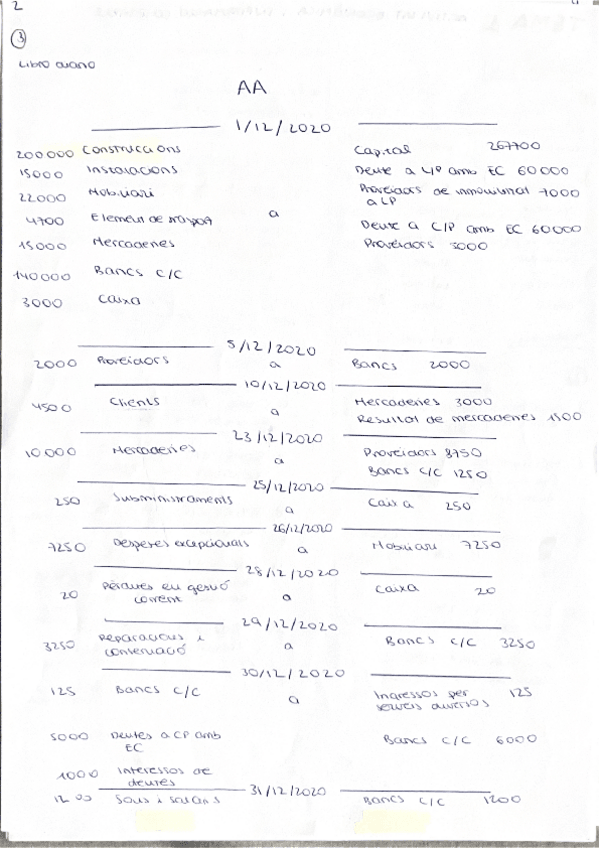 2
3
Libro diario
AA
1/12/2020
200000 Construccions Capital 267700
15000 Instalacions Deute a L/P amb EC 60000
22000 Mobiliari Proveidors de immobilitzat 7000
a LP
4700 Element de transport a Deute a C/P amb EC 60000
15000 Mercaderies Proveidors 5000
140000 Bancs C/C
3000 Caixa
5/12/2020
2000 Proveidors a Bancs 2000
10/12/2020
4500 Clients a Mercaderies 3000
Resultat de mercaderies 1500
23/12/2020
10000 Mercaderies a Proveidors 8750
Bancs C/C 1250
25/12/2020
250 Subministraments a Caixa 250
26/12/2020
7250 Despeses excepcionals a Mobiliari 7250
28/12/2020
20 Pèrdues en gestió a Caixa 20
corrent
29/12/2020
3250 Reparacions i a Bancs C/C 3250
conservació
30/12/2020
125 Bancs C/C a Ingressos per 125
serveis diversos
5000 Deutes a CP amb Bancs C/C 6000
EC
1000 Interessos de
deutes
31/12/2020
1200 Sous i salaris Bancs C/C 1200